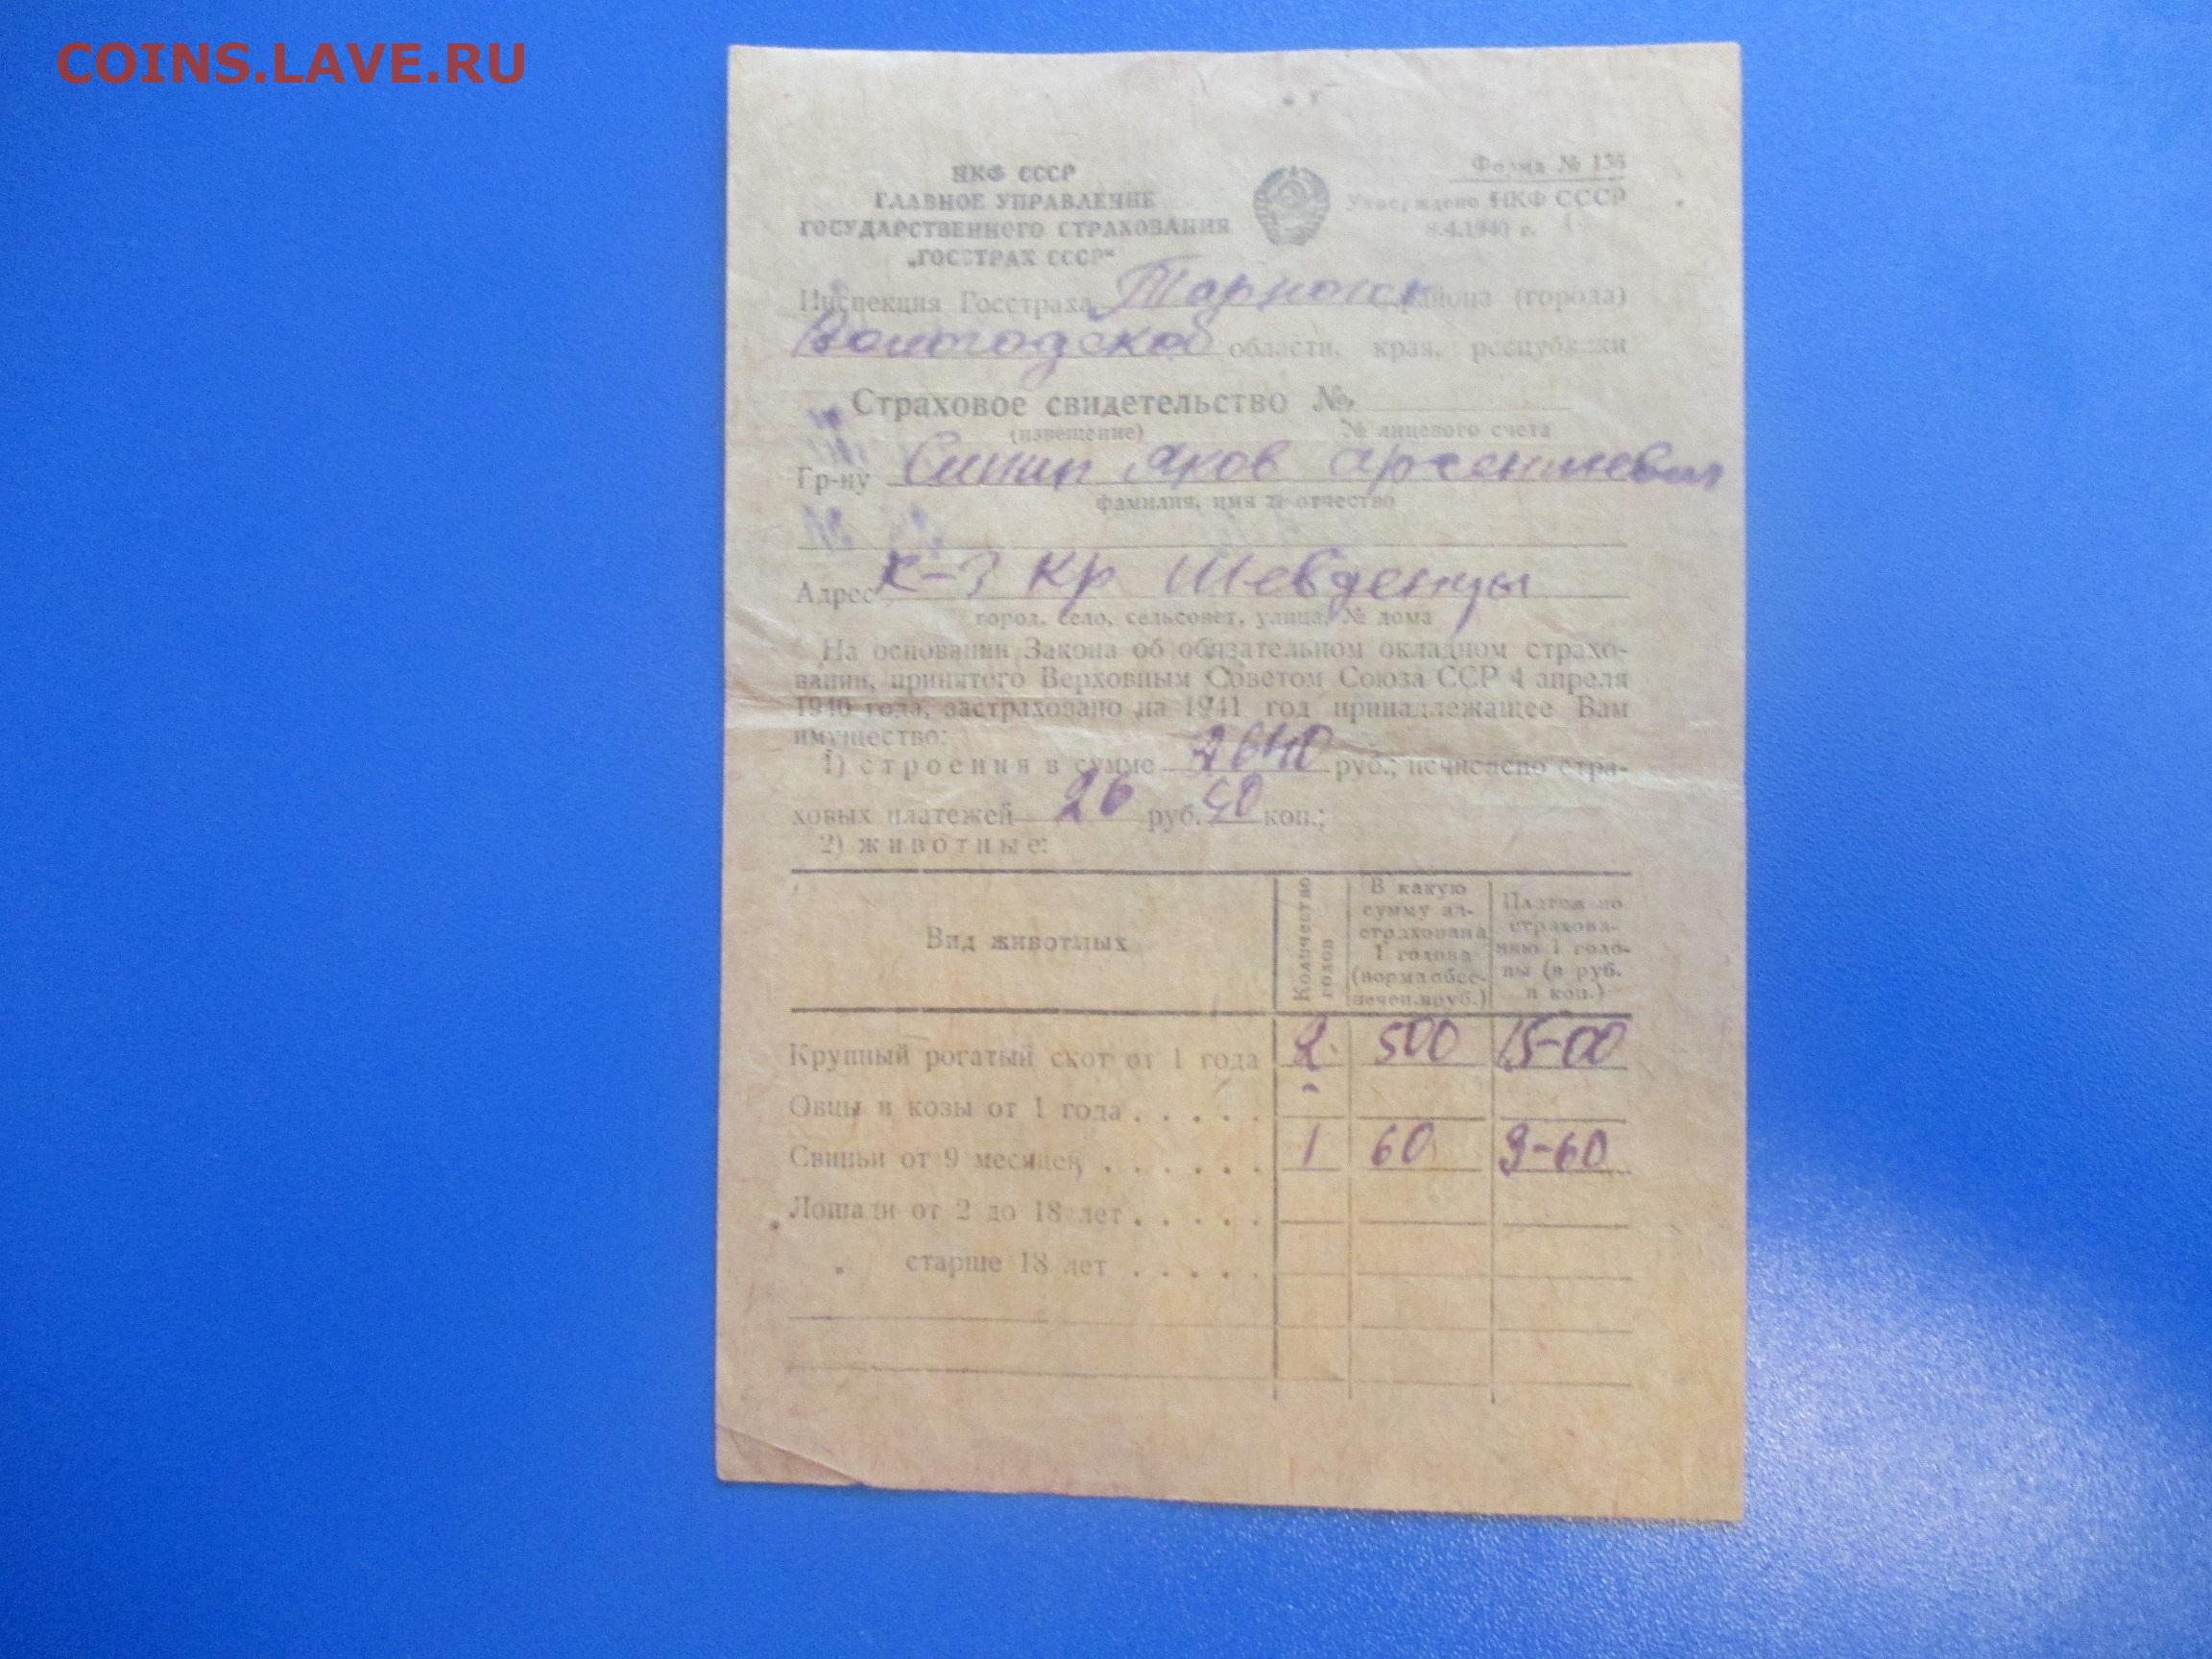 COINS.LAVE.RU
НКФ СССР
ГЛАВНОЕ УПРАВЛЕНИЕ
ГОСУДАРСТВЕННОГО СТРАХОВАНИЯ
„ГОССТРАХ СССР"
Форма № 136
Утверждено НКФ СССР
8.4.1940 г.
Инспекция Госстраха Тарногск района (города)
Вологодской области, края, республики
Страховое свидетельство №
(извещение) № лицевого счета
Гр-ну Синин Яков Арсениевич
фамилия, имя и отчество
Адрес К-з Кр Шевденцы
город, село, сельсовет, улица, № дома
На основании Закона об обязательном окладном страхо-
вании, принятого Верховным Советом Союза ССР 4 апреля
1940 года, застраховано на 1941 год принадлежащее Вам
имущество:
1) строения в сумме 2640 руб.; исчислено стра-
ховых платежей 26 руб. 40 коп.;
2) животные:
Вид животных
Количество голов
В какую
сумму за-
страхована
1 голова
(норма обес-
печен. в руб.)
Платеж по
страхова-
нию 1 голо-
вы (в руб.
и коп.)
Крупный рогатый скот от 1 года 2 500 15-00
Овцы и козы от 1 года . . . . .
Свиньи от 9 месяцев . . . . . . 1 60 3-60
Лошади от 2 до 18 лет . . . . .
„ старше 18 лет . . . . .